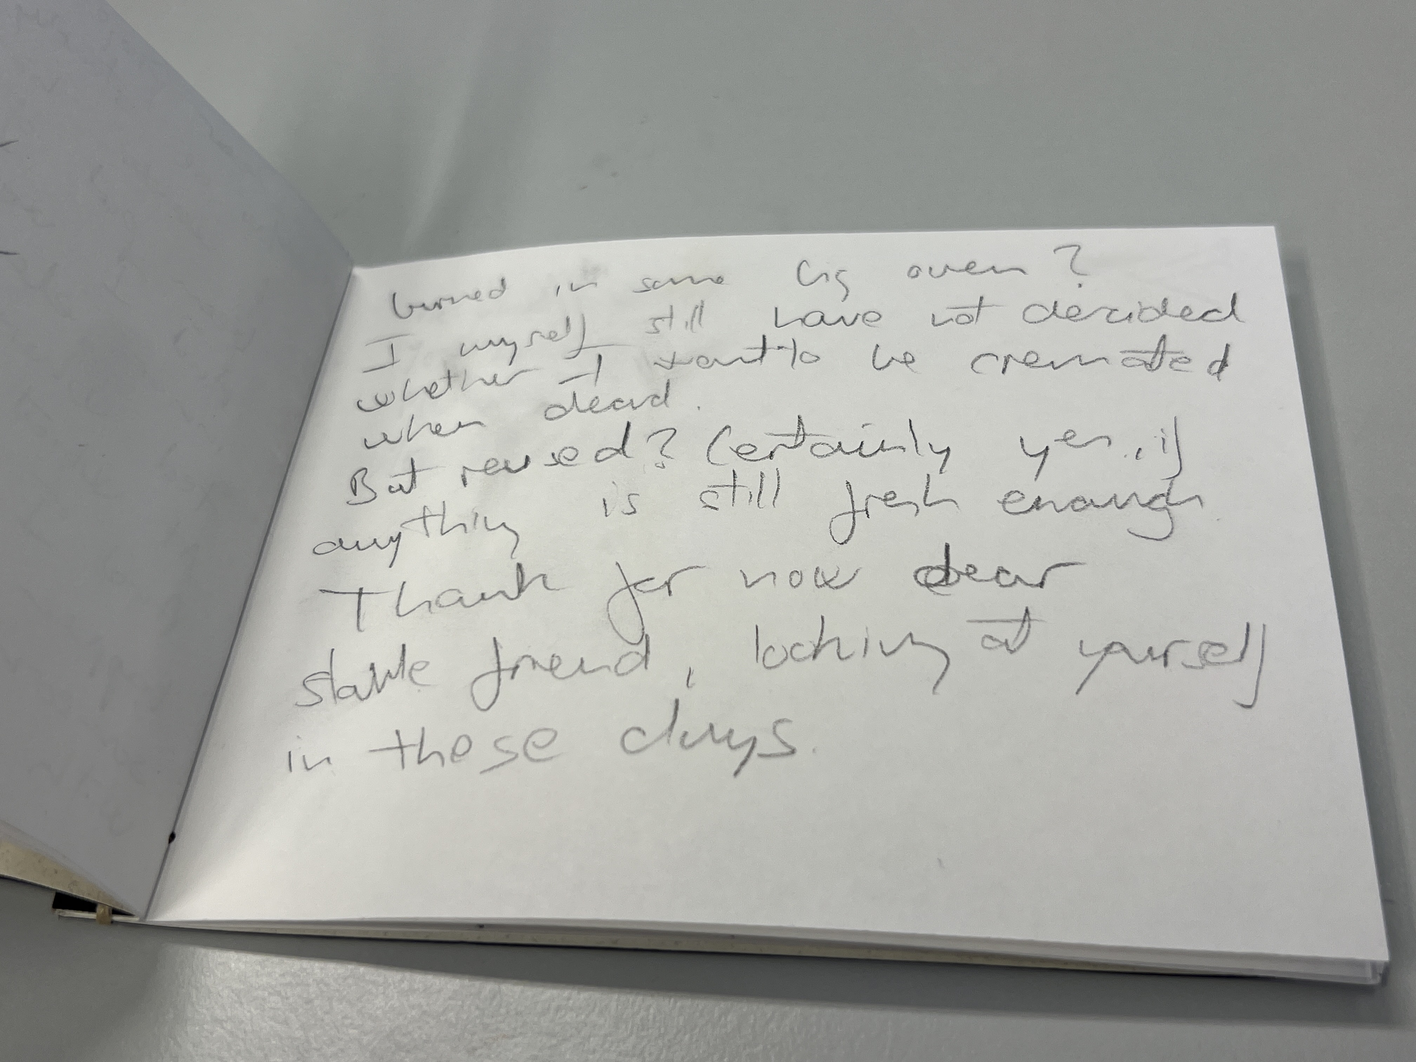 burned in some big oven?
I myself still have not decided
whether I want to be cremated
when dead.
But reused? Certainly yes, if
anything is still fresh enough
Thank for now dear
stable friend, looking at yourself
in these days.